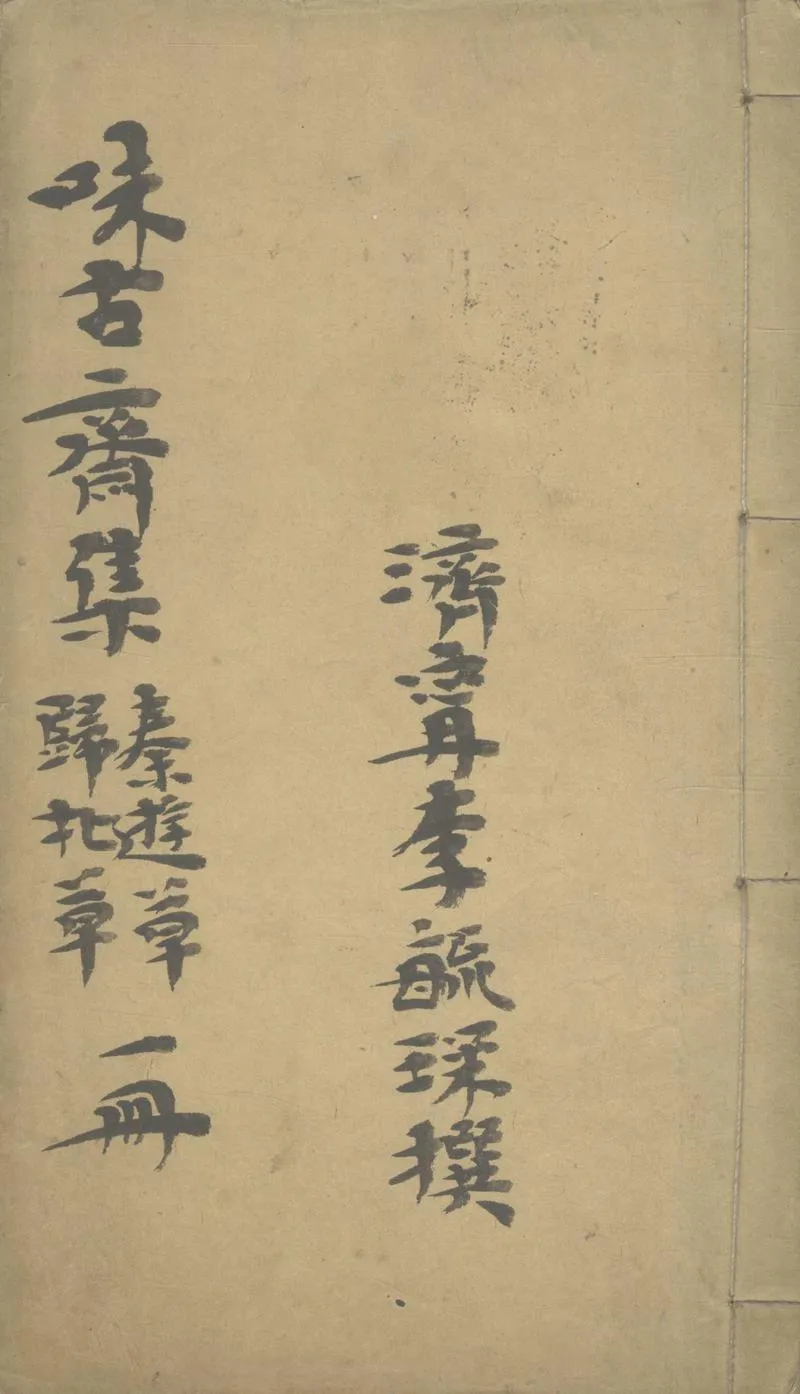 濟寧李毓琛撰
味古齋集
秦遊草
歸北草
一冊